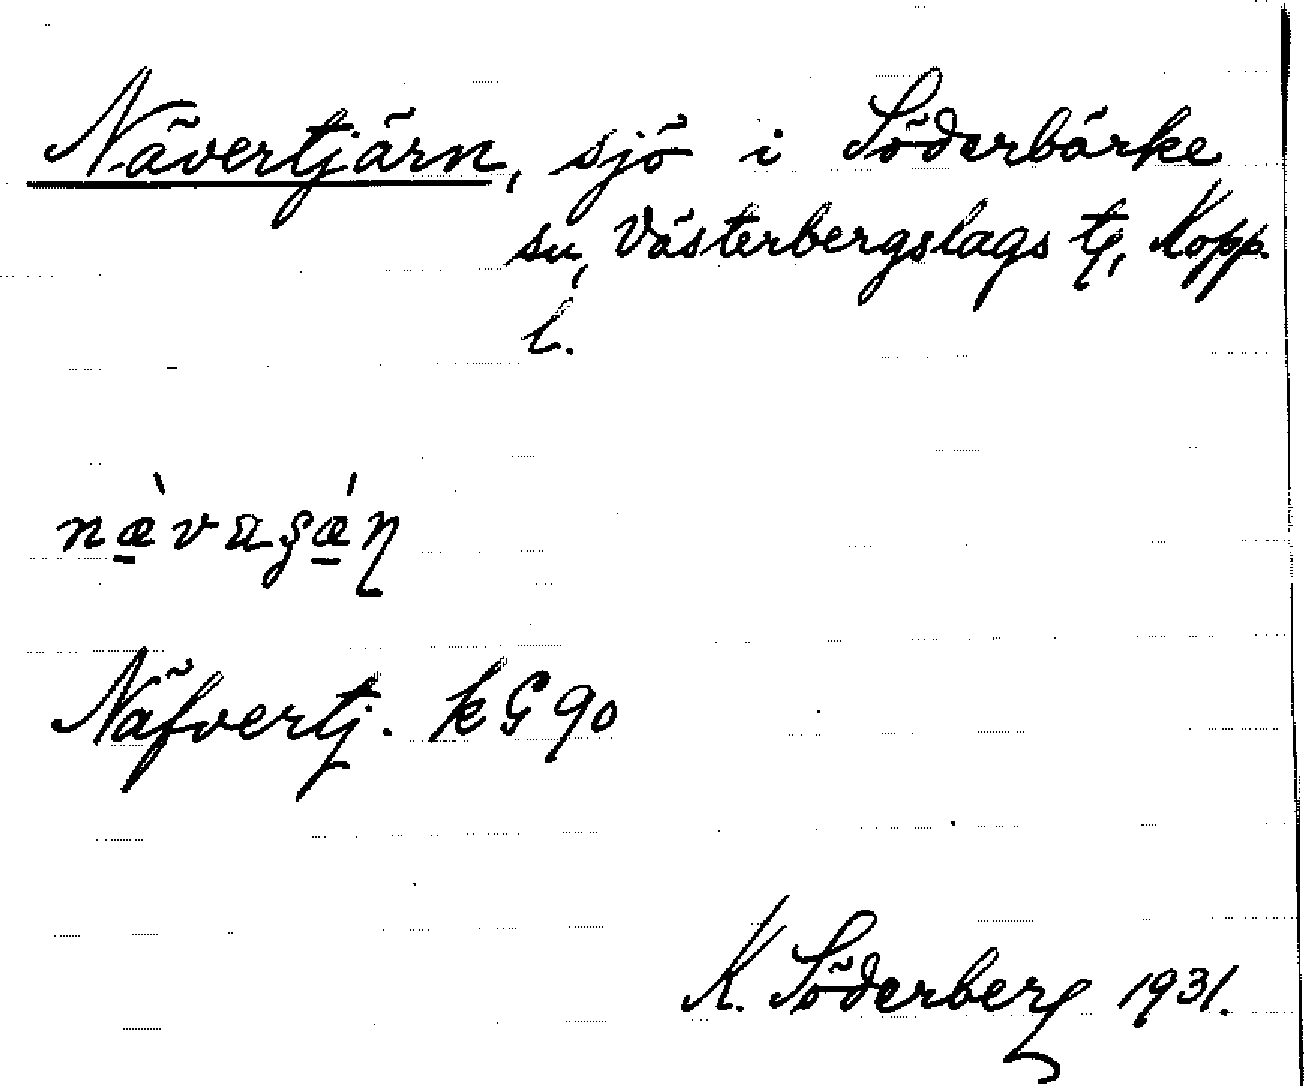 Nävertjärn, sjö i Söderbärke
sn, Västerbergslags tg, Kopp.
l.
Näfvertj. kG 90
K. Söderberg 1931.